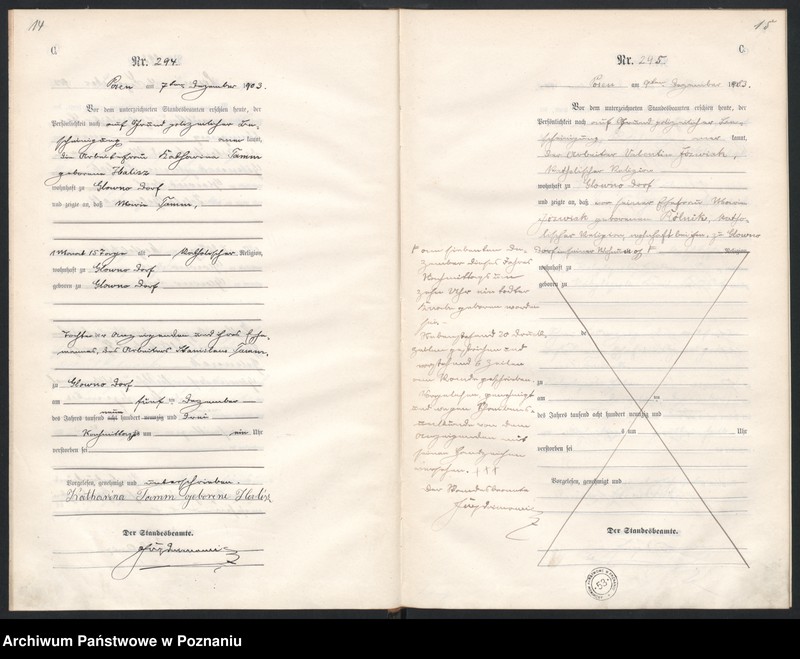 14
C.
Nr. 294.
Posen am 7ten Dezember 1903.
Vor dem unterzeichneten Standesbeamten erschien heute, der
Persönlichkeit nach auf Grund polizeilicher Be-
scheinigung kannt,
die Arbeiterfrau Katharina Tamm
geborene Halisz
wohnhaft zu Glowno Dorf
und zeigte an, daß Maria Tamm,
1 Monat 15 Tage alt Katholischer Religion,
wohnhaft zu Glowno Dorf
geboren zu Glowno Dorf
Tochter der Anzeigenden und ihres Ehe-
mannes, des Arbeiters Stanislaus Tamm,
zu Glowno Dorf
am fünf ten Dezember
des Jahres tausend acht neun hundert neunzig und drei
Nachmittags um ein Uhr
verstorben sei
Vorgelesen, genehmigt und unterschrieben.
Katharina Tamm geborene Halisz
Der Standesbeamte.
15
C.
Nr. 295.
Posen am 9ten Dezember 1903.
Vor dem unterzeichneten Standesbeamten erschien heute, der
Persönlichkeit nach auf Grund polizeilicher Be-
scheinigung kannt,
der Arbeiter Valentin Jozwiak,
Katholischer Religion
wohnhaft zu Glowno Dorf
und zeigte an, daß von seiner Ehefrau Maria
Jozwiak geborenen Rólnik, katho-
lischer Religion, wohnhaft bei ihm, zu Glowno
Dorf in seiner Wohnung Religion,
am siebenten De-
zember dieses Jahres
Nachmittags um
zehn Uhr ein todter
Knabe geboren worden
sei.
Nebenstehend 20 Druck-
zeilen gestrichen und
vorstehend 6 Zeilen
am Rande geschrieben.
Vorgelesen, genehmigt
und wegen Schreibens-
unkunde von dem
Anzeigenden mit
seinem Handzeichen
versehen. +++
Der Standesbeamte
wohnhaft zu
geboren zu
de
zu
am ten
des Jahres tausend acht hundert neunzig und
um Uhr
verstorben sei
Vorgelesen, genehmigt und
Der Standesbeamte.
53
Archiwum Państwowe w Poznaniu